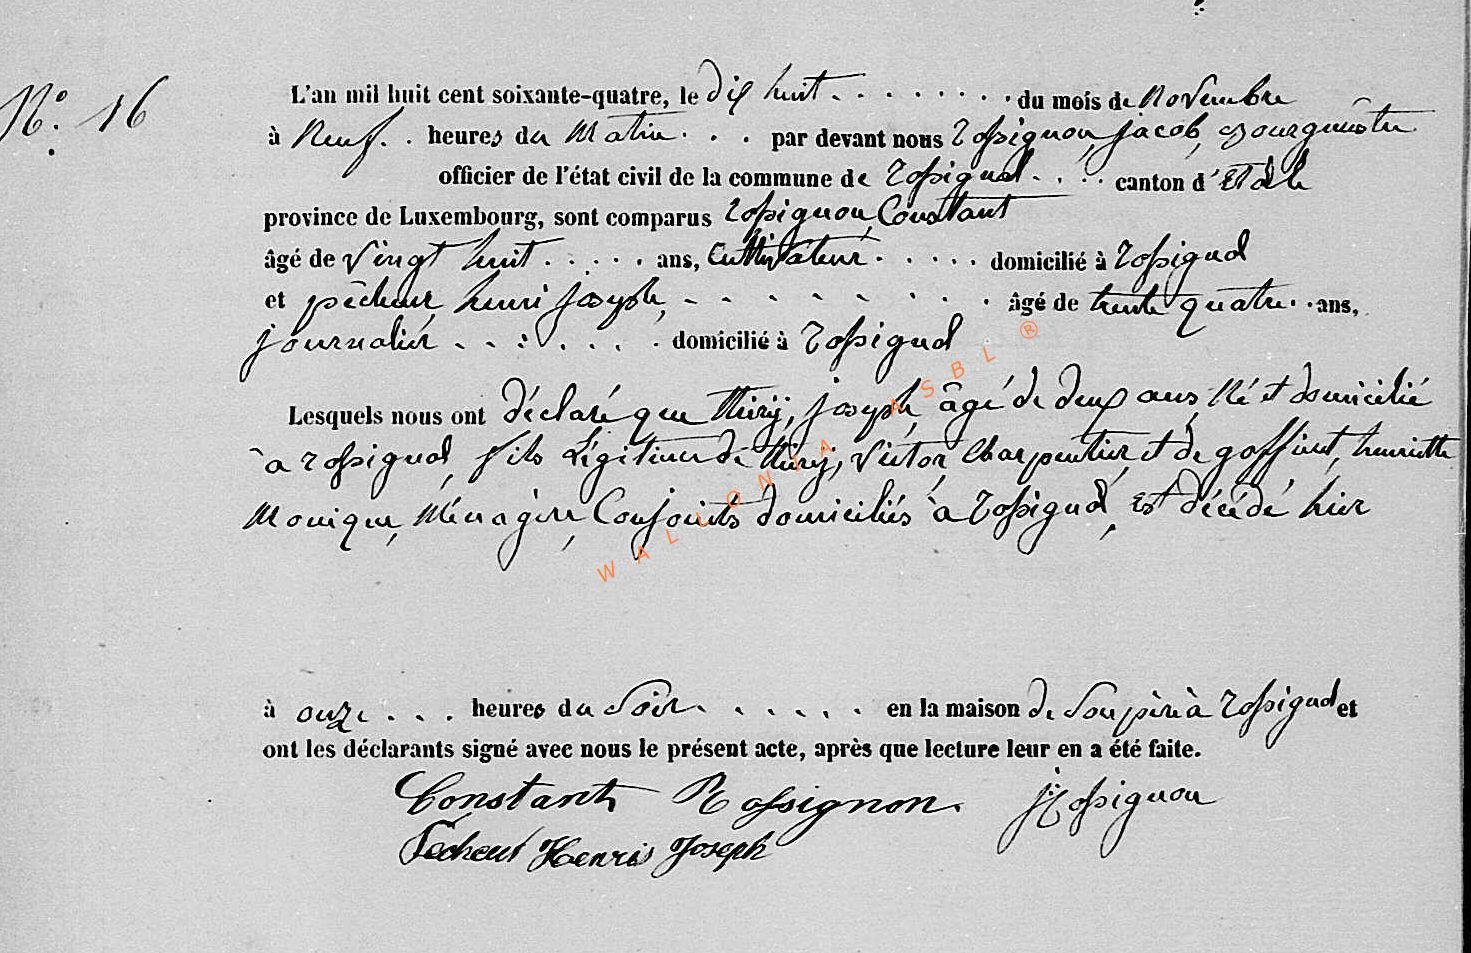 N.° 16
L'an mil huit cent soixante-quatre, le dix huit . . . . . . . . du mois de Novembre
à Neuf . . heures du Matin . . . par devant nous Rossignon, jacob, Bourguméstre
officier de l'état civil de la commune de Rossignol . . . . canton d'Etalle
province de Luxembourg, sont comparus Rossignon, Constant
âgé de vingt huit . . . . . ans, Cultivateur . . . . . domicilié à Rossignol
et pêcheur, henri joseph, - - - - - - - - . . âgé de trente quatre . . ans,
journalier . . . . . . . domicilié à Rossignol
Lesquels nous ont déclaré que thirÿ, joseph, âgé de deux ans, Né et domicilié
à Rossignol, fils Légitime de thirÿ, Victor, Charpentier, et de goffinet, henriette
Monique, Ménagère, Conjoints domiciliés à Rossignol, est décédé hier
à onze . . . heures du Soir . . . . . . en la maison de Son père à Rossignol et
ont les déclarants signé avec nous le présent acte, après que lecture leur en a été faite.
Constant Rossignon. J Rossignon
Pécheur Henris Joseph
WALLONIA ASBL ®